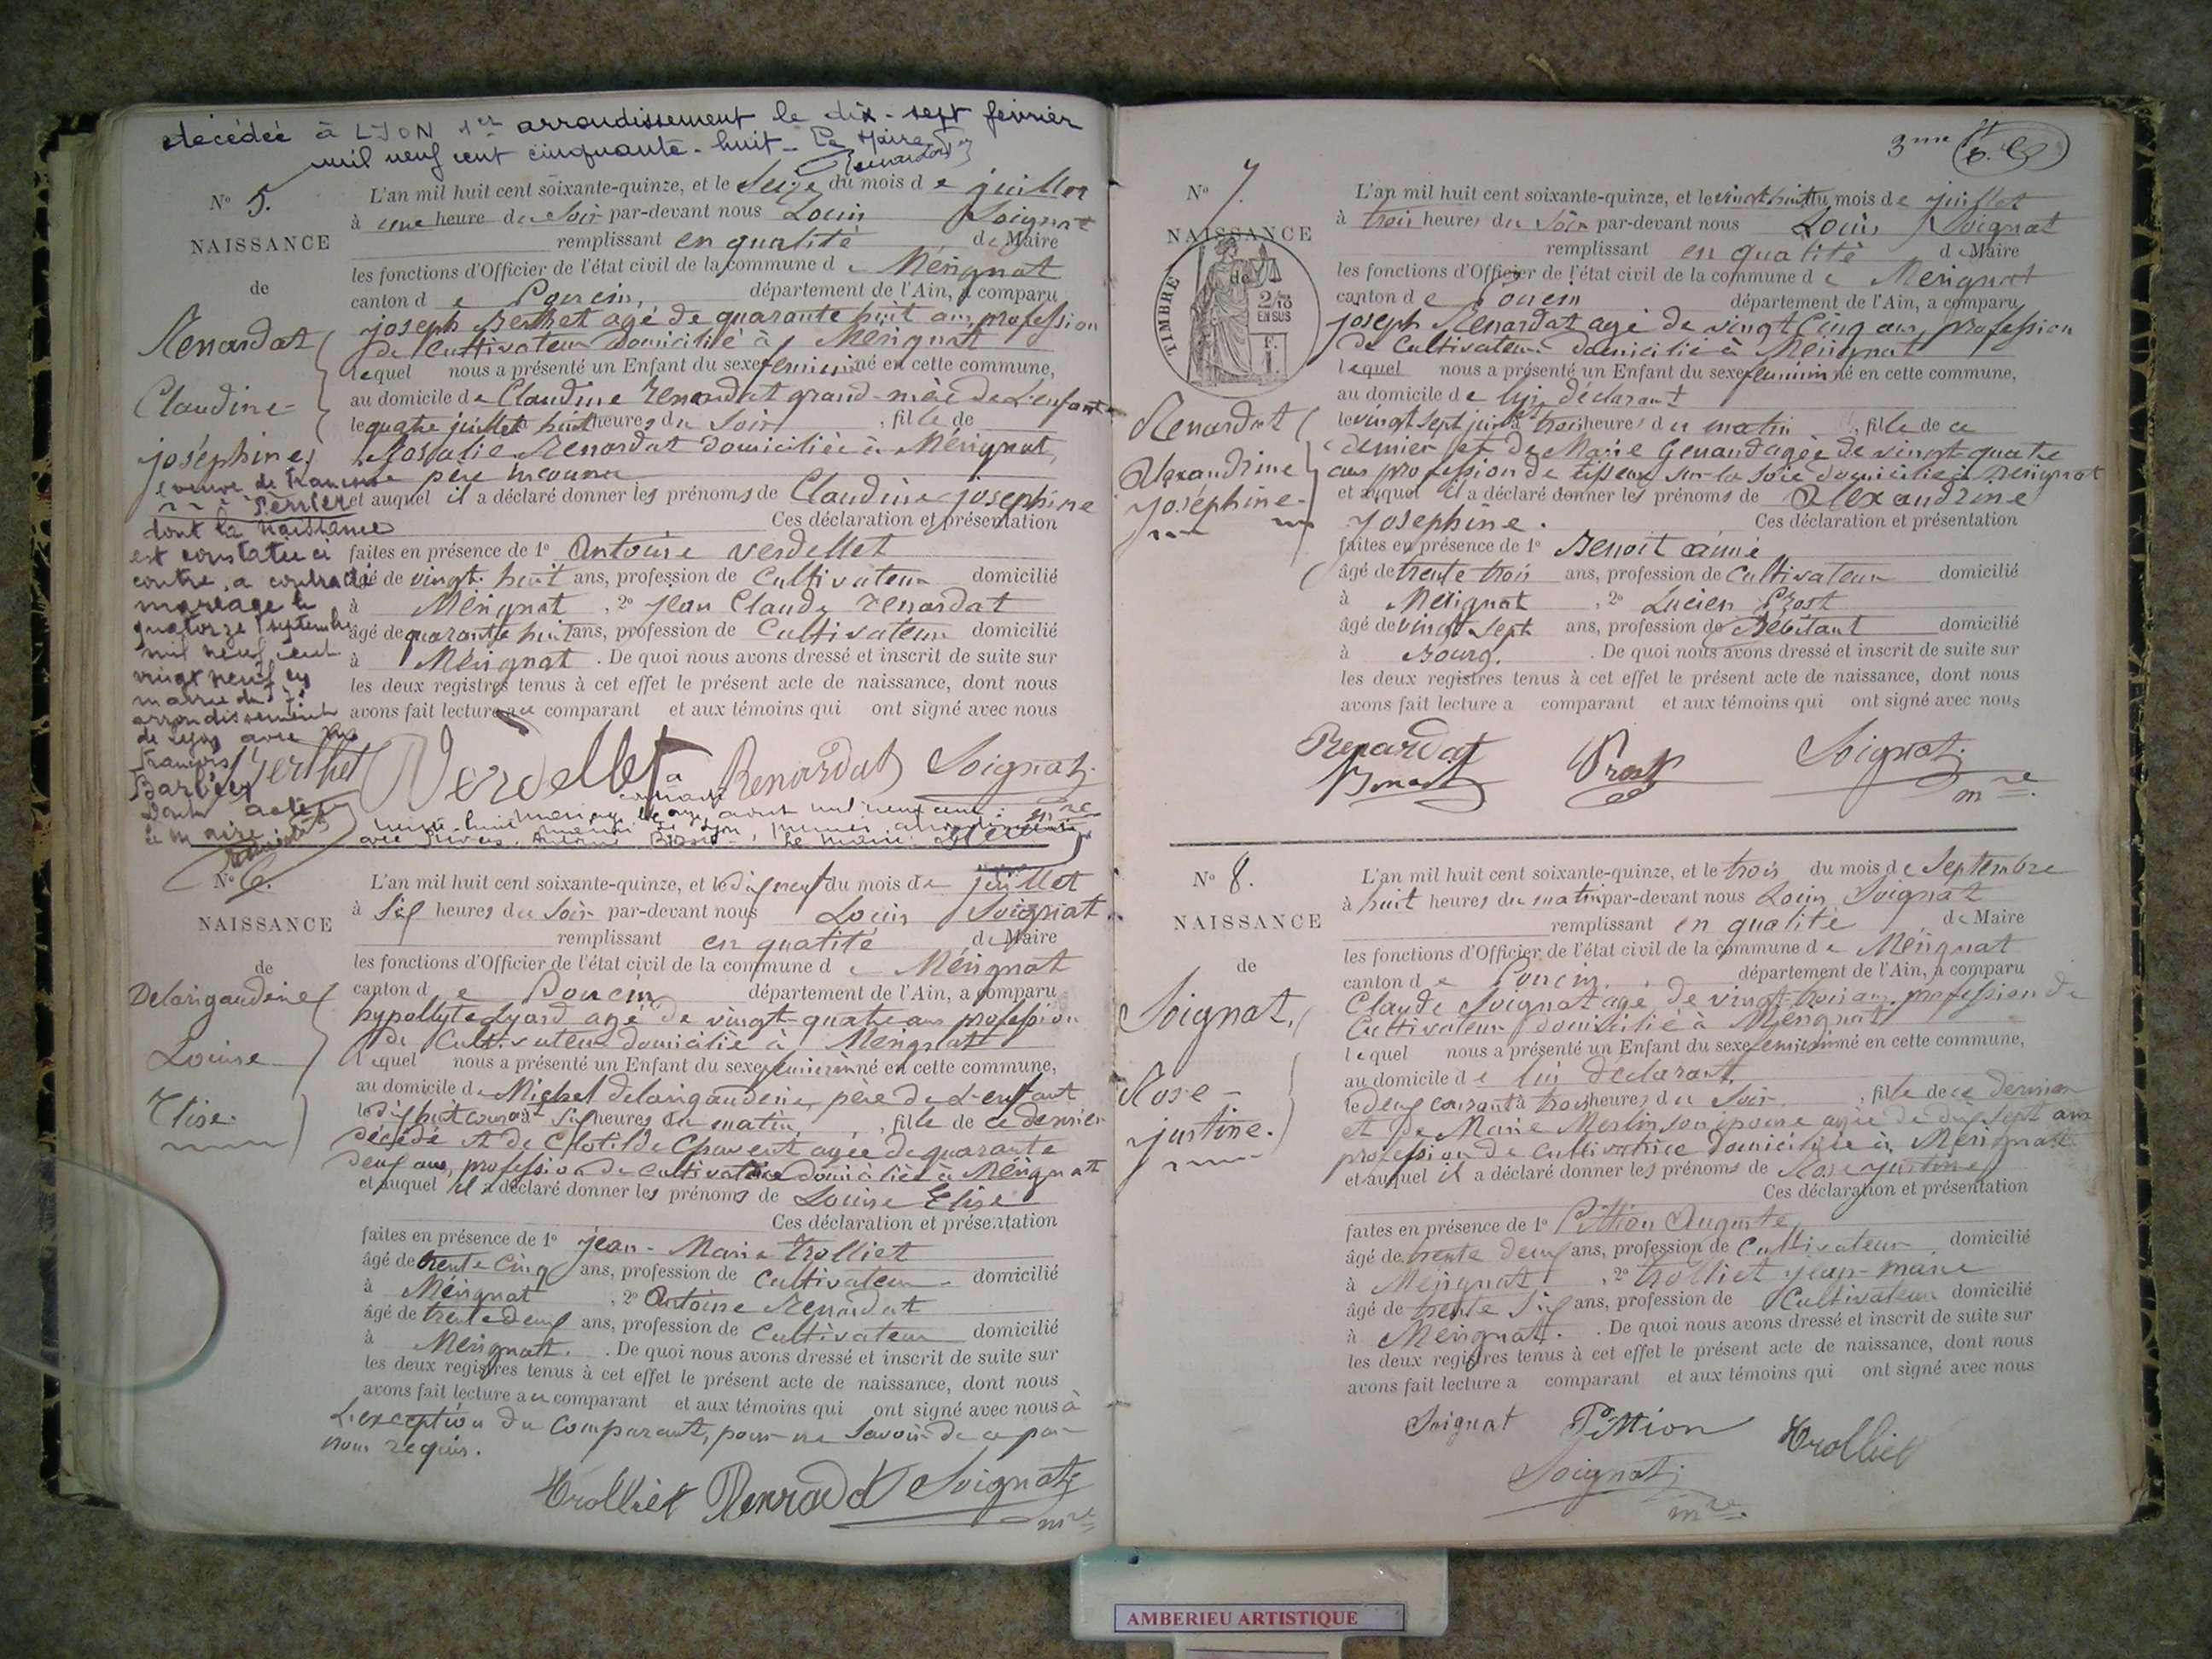 décédée à LYON 1er arrondissement le dix-sept février
mil neuf cent cinquante-huit - Le Maire
N° 5.
NAISSANCE
de
Renardat
Claudine-
joséphine
veuve de
Perrier
dont la naissance
est constatée ci
contre, a contracté
mariage le
quatorze septembre
mil neuf cent
vingt neuf en
mairie du
arrondissement
de Lyon avec
François
Barbier
Dont acte
Le Maire
L'an mil huit cent soixante-quinze, et le Seize du mois de juillet
à une heure du Soir par-devant nous Louis Soignat
remplissant en qualité de Maire
les fonctions d'Officier de l'état civil de la commune de Mérignat
canton de Poncin, département de l'Ain, a comparu
joseph Berthet agé de quarante huit ans profession
de Cultivateur domicilié à Mérignat
lequel nous a présenté un Enfant du sexe feminin né en cette commune,
au domicile de Claudine Renardat grand-mère de L'enfant
le quatre juillet à huit heures du Soir, fille de
Rosalie Renardat domiciliée à Mérignat,
père inconnu
et auquel il a déclaré donner les prénoms de Claudine josephine
Ces déclaration et présentation
faites en présence de 1° Antoine Verdellet
âgé de vingt-huit ans, profession de Cultivateur domicilié
à Mérignat, 2° Jean Claude renardat
âgé de quarante huit ans, profession de Cultivateur domicilié
à Mérignat. De quoi nous avons dressé et inscrit de suite sur
les deux registres tenus à cet effet le présent acte de naissance, dont nous
avons fait lecture au comparant et aux témoins qui ont signé avec nous
Berthet Verdellet Renardat Soignat
mre
N° 6.
NAISSANCE
de
Delarigaudine
Louise
Elise.
L'an mil huit cent soixante-quinze, et le dix neuf du mois de juillet
à Six heures du Soir par-devant nous Louis Soignat
remplissant en qualité de Maire
les fonctions d'Officier de l'état civil de la commune de Mérignat
canton de Poncin département de l'Ain, a comparu
hypollyte Lyard agé de vingt-quatre ans profession
de Cultivateur domicilié à Mérignat
lequel nous a présenté un Enfant du sexe feminin né en cette commune,
au domicile de Michel Delarigaudine, père de L'enfant
le dix huit courant à Six heures du matin, fille de ce dernier
décédé et de Clotilde Chavent agée de quarante
deux ans, profession de cultivatrice domiciliée à Mérignat
et auquel il a déclaré donner les prénoms de Louise Elise
Ces déclaration et présentation
faites en présence de 1° jean-Marie trolliet
âgé de trente Cinq ans, profession de Cultivateur domicilié
à Mérignat, 2° Antoine Renardat
âgé de trente deux ans, profession de Cultivateur domicilié
à Mérignat. De quoi nous avons dressé et inscrit de suite sur
les deux registres tenus à cet effet le présent acte de naissance, dont nous
avons fait lecture au comparant et aux témoins qui ont signé avec nous à
L'exception du Comparant, pour ne Savoir de ce par
nous requis.
trolliet Renardat Soignat
mre
3me
N° 7.
NAISSANCE
de
TIMBRE
2/10
EN SUS
Renardat
Alexandrine
joséphine-
L'an mil huit cent soixante-quinze, et le vingt huit du mois de juillet
à trois heures du Soir par-devant nous Louis Soignat
remplissant en qualité de Maire
les fonctions d'Officier de l'état civil de la commune de Mérignat
canton de Poncin département de l'Ain, a comparu
joseph Renardat agé de vingt Cinq ans, profession
de Cultivateur domicilié à Mérignat
lequel nous a présenté un Enfant du sexe feminin né en cette commune,
au domicile de lui déclarant
le vingt sept à trois heures du matin, fille de ce
dernier et de Marie Genaud agée de vingt quatre
ans profession de tisseur sur la soie domiciliée à Mérignat
et auquel il a déclaré donner les prénoms de Alexandrine
Josephine. Ces déclaration et présentation
faites en présence de 1° Benoit aimé
âgé de trente trois ans, profession de Cultivateur domicilié
à Mérignat, 2° Lucien Prost
âgé de vingt Sept ans, profession de Débitant domicilié
à Bourg. De quoi nous avons dressé et inscrit de suite sur
les deux registres tenus à cet effet le présent acte de naissance, dont nous
avons fait lecture a comparant et aux témoins qui ont signé avec nous
Renardat Prost Soignat
Benoit mre
N° 8.
NAISSANCE
de
Soignat,
Rose-
justine.
L'an mil huit cent soixante-quinze, et le trois du mois de Septembre
à huit heures du matin par-devant nous Louis Soignat
remplissant en qualité de Maire
les fonctions d'Officier de l'état civil de la commune de Mérignat
canton de Poncin, département de l'Ain, a comparu
Claude Soignat agé de vingt-trois ans profession de
Cultivateur domicilié à Mérignat
lequel nous a présenté un Enfant du sexe feminin né en cette commune,
au domicile de lui déclarant,
le deux courant à trois heures du Soir, fille de ce dernier
et de Marie Merlin son épouse agée de dix sept ans
profession de Cultivatrice domiciliée à Mérignat
et auquel il a déclaré donner les prénoms de Rose justine
Ces déclaration et présentation
faites en présence de 1° Pittion Auguste
âgé de trente deux ans, profession de Cultivateur domicilié
à Mérignat, 2° trolliet jean-marie
âgé de trente Six ans, profession de Cultivateur domicilié
à Mérignat. De quoi nous avons dressé et inscrit de suite sur
les deux registres tenus à cet effet le présent acte de naissance, dont nous
avons fait lecture a comparant et aux témoins qui ont signé avec nous
Soignat Pittion trolliet
Soignat
mre
AMBERIEU ARTISTIQUE